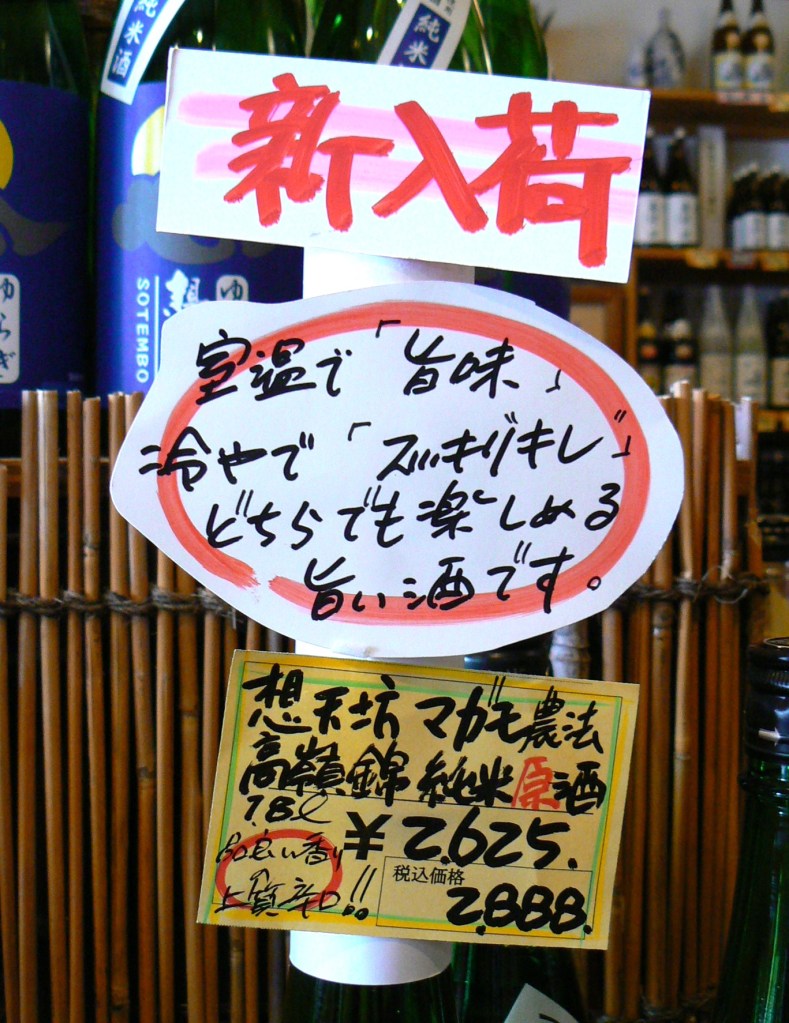 純米酒
純米
新入荷
SOTEMBO
ゆらぎ
ゆ
室温で「旨味」
冷やで「スッキリキレ」
どちらでも楽しめる
旨い酒です。
想天坊 マガモ農法
高嶺錦 純米原酒
1.8ℓ
¥2.625.
品良い香り
上質辛口!!
税込価格
2.888.